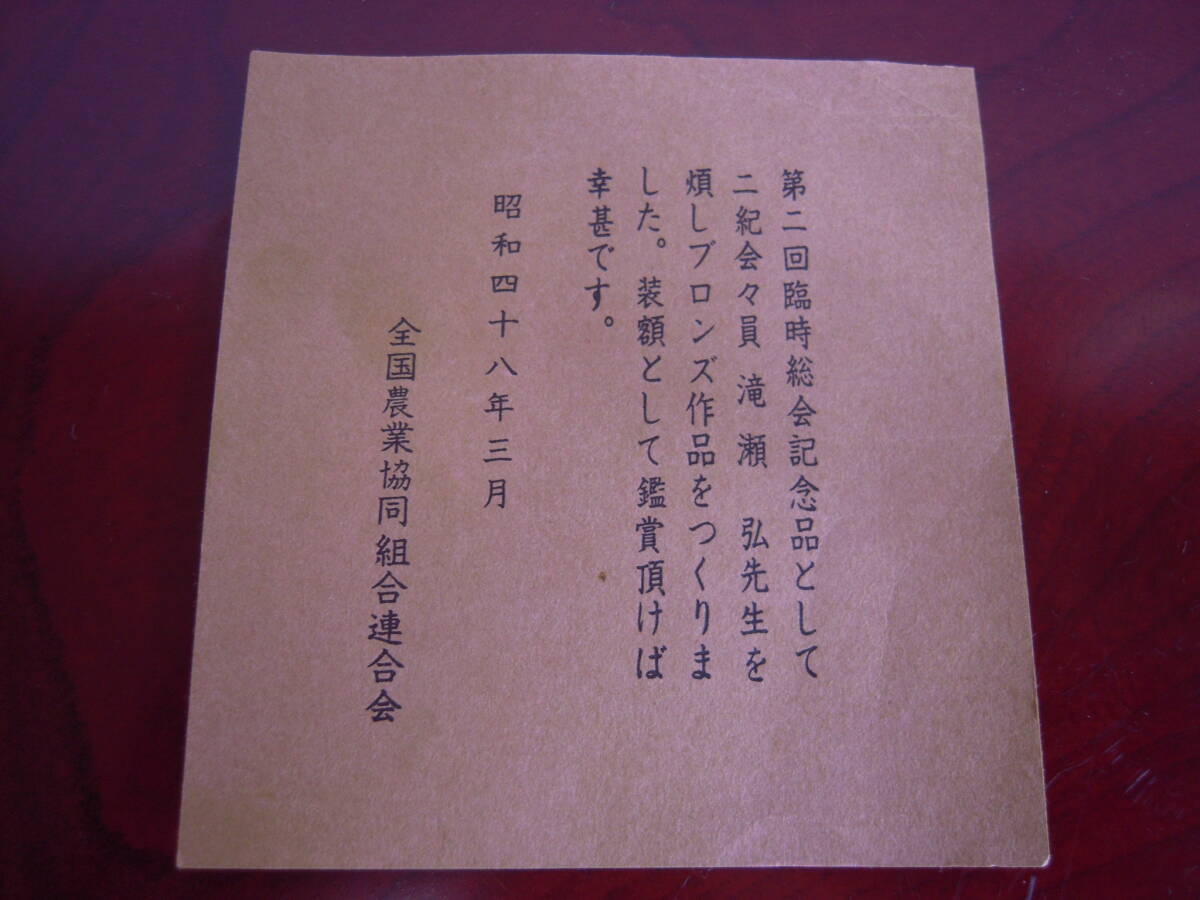 第二回臨時総会記念品として
二紀会々員 滝瀬 弘先生を
煩しブロンズ作品をつくりま
した。装額として鑑賞頂けば
幸甚です。
昭和四十八年三月
全国農業協同組合連合会